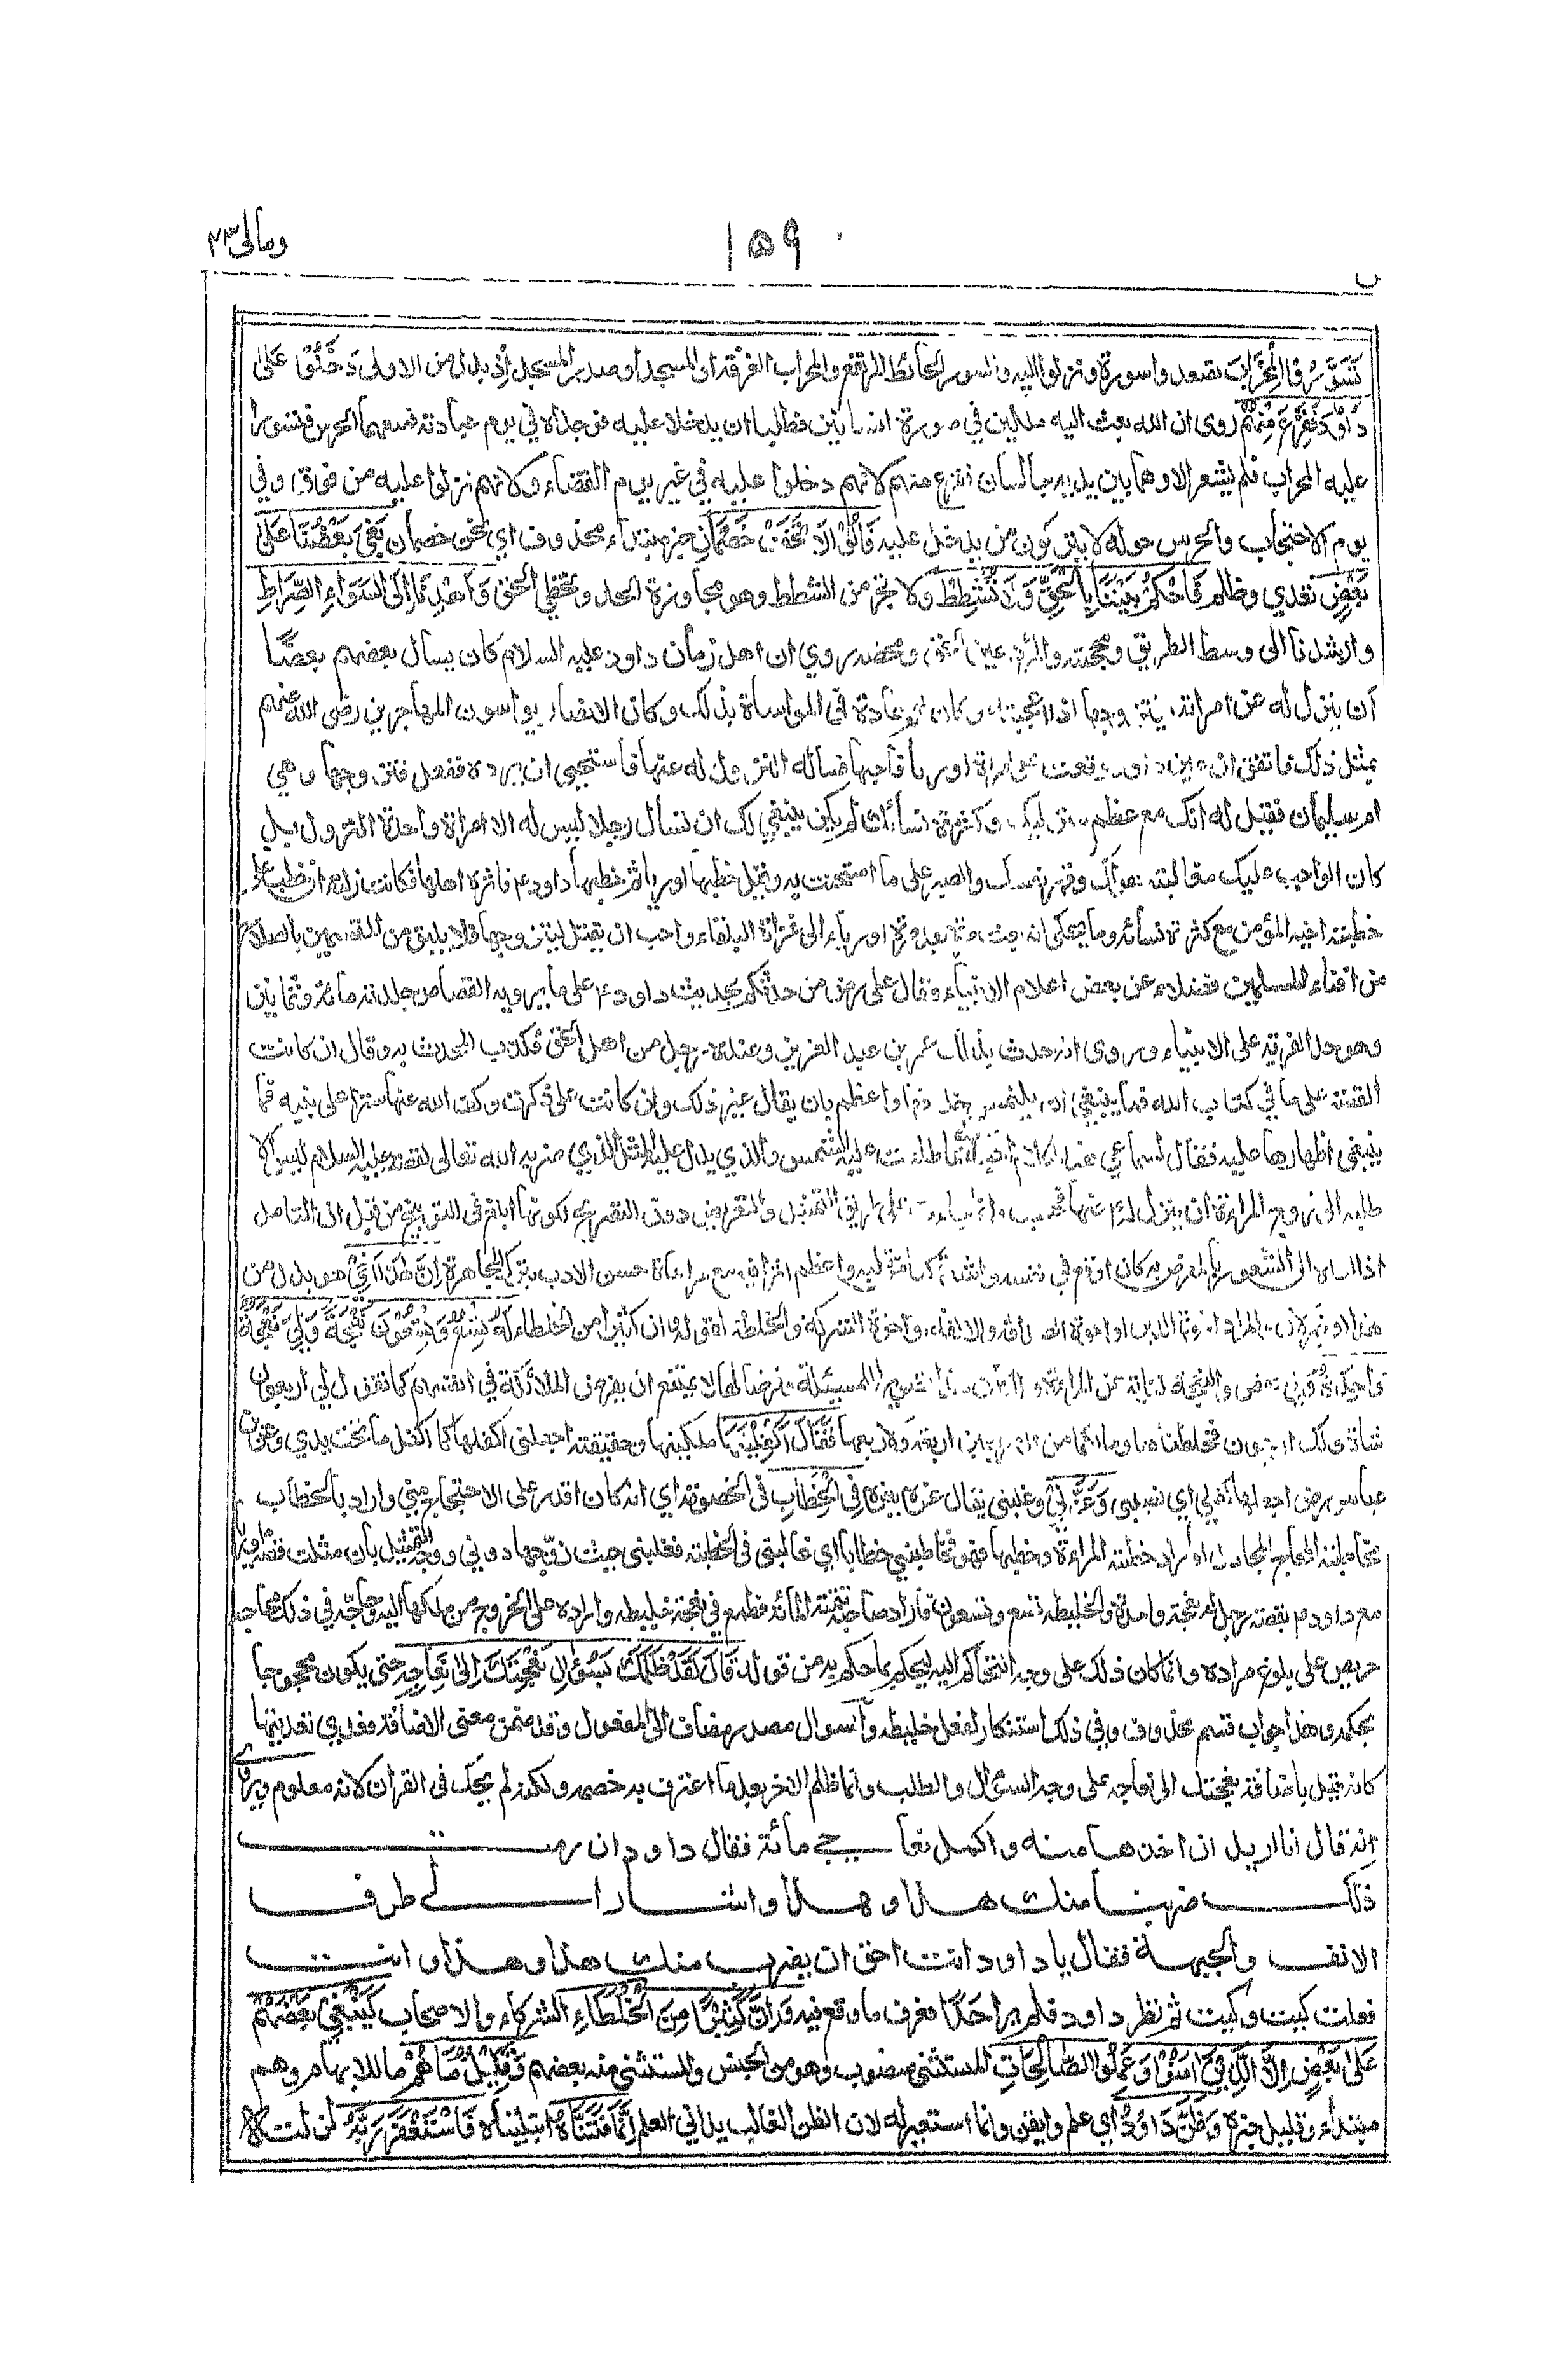 ومالى ٢٣
١٥٩
ص
تَسَوَّرُوا الْمِحْرَابَ تصعدوا سورة ونزلوا اليه والسور الحائط المرتفع والمحراب الغرفة او المسجد او صدر المسجد اِذْ بدل من الاولى دَخَلُوْا عَلٰى
دَاوٗدَ فَفَزِعَ مِنْهُمْ روى ان الله بعث اليه ملكين في صورة انسانين فطلبا ان يدخلا عليه فوجداه في يوم عبادته فمنعهما الحرس فتسورا
عليه المحراب فلم يشعر الا وهما بين يديه جالسان ففزع منهم لانهم دخلوا عليه في غير يوم القضاء ولانهم نزلوا عليه من فوق وفي
يوم الاحتجاب والحرس حوله لا يتركون من يدخل عليه قَالُوْا لَا تَخَفْ خَصْمٰنِ خبر مبتداء محذوف اي نحن خصمان بَغٰى بَعْضُنَا عَلٰى
بَعْضٍ تعدي وظلم فَاحْكُمْ بَيْنَنَا بِالْحَقِّ وَلَا تُشْطِطْ ولا تجر من الشطط وهو مجاوزة الحد وتخطي الحق وَاهْدِنَا اِلٰى سَوَاءِ الصِّرَاطِ
وارشدنا الى وسط الطريق ومحجته والمراد عين الحق ومحضه روي ان اهل زمان داود عليه السلام كان يسأل بعضهم بعضًا
ان ينزل له عن امراته فيتزوجها اذا اعجبته وكان لهم عادة في المواساة بذلك وكان الانصار يواسون المهاجرين رضى الله عنهم
بمثل ذلك فاتفق ان عين داود وقعت على امراة اوريا فاحبها فساله النزول له عنها فاستحيى ان يرده ففعل فتزوجها وهي
ام سليمان فقيل له انك مع عظم منزلتك وكثرة نسائك لم يكن ينبغي لك ان تسأل رجلا ليس له الا امراة واحدة النزول بل
كان الواجب عليك مغالبة هواك وقهر نفسك والصبر على ما امتحنت به وقيل خطبها اوريا ثم خطبها داود ء فاثره اهلها فكانت زلته ان خطب على
خطبة اخيه المؤمن مع كثرة نسائه وما يحكى انه بعث مرة بعد مرة اورياء الى غزاة البلقاء واحب ان يقتل ليتزوجها فلا يليق من المتسمين بالصلاح
من افناء المسلمين فضلا عن بعض اعلام الانبياء وقال على رض من حدثكم بحديث داود ء على ما يرويه القصاص جلدته مائة وثمانين
وهو حد الفرية على الانبياء وروى انه حدث بذلك عمر بن عبد العزيز وعنده رجل من اهل الحق فكذب المحدث به وقال ان كانت
القصة على ما في كتاب الله فما ينبغي ان يلتمس خلافها واعظم بان يقال غير ذلك وان كانت على ما ذكرت وكف الله عنها سترا على نبيه فما
ينبغى اظهارها عليه فقال عمر لسماعي هذا الكلام احب الى مما طلعت عليه الشمس والذي يدل عليه المثل الذي ضربه الله تعالى لقصته عليه السلام ليس الا
طلبه الى زوج المراة ان ينزل له عنها فحسب وانما جاءت على طريق التمثيل والتعريض دون التصريح لكونها ابلغ في التوبيخ من قبل ان التامل
اذا اداه الى الشعور بالمعرض به كان اوقع في نفسه واشد تمكنا من قلبه واعظم اثرا فيه مع مراعاة حسن الادب بترك المجاهرة اِنَّ هٰذَا اَخِيْ هو بدل من
هذا او خبر لان والمراد اخوة الدين او اخوة الصداقة والالفة واخوة الشركة والخلطة لقوله وان كثيرا من الخلطاء لَهٗ تِسْعٌ وَّتِسْعُوْنَ نَعْجَةً وَّلِيَ نَعْجَةٌ
وَّاحِدَةٌ ولي حفص والنعجة كناية عن المراءة ولما كان هذا تصويرا للمسئلة وفرضا لها لا يمتنع ان يفرض الملائكة في انفسهم كما تقول لي اربعون
شاة ولك اربعون فخلطناها وما لكما من الاربعين اربعة ولا ربعها فَقَالَ اَكْفِلْنِيْهَا ملكنيها وحقيقته اجعلنى اكفلها كما اكفل ما تحت يدي وعن ابن
عباس رض اجعلها كفلي اي نصيبى وَعَزَّنِيْ وغلبنى يقال عزه يعزه فِي الْخِطَابِ فى الخصومة اي انه كان اقدر على الاحتجاج منى واراد بالخطاب
مخاطبة المحاج المجادل او اراد خطبت المراءة وخطبها هو فخاطبني خطابا اي غالبنى فى الخطبة فغلبنى حيث زوجها دونى ووجه التمثيل بان مثلت قصة اوريا
مع داود ء بقصة رجل له نعجة واحدة ولخليطه تسع وتسعون فاراد صاحبه تتمة المائة فطمع في نعجة خليطه واراده على الخروج من ملكها اليه وحاجّه في ذلك محاجة
حريص على بلوغ مراده وانما كان ذلك على وجه التحاكم اليه ليحكم بما حكم به من قوله قَالَ لَقَدْ ظَلَمَكَ بِسُؤَالِ نَعْجَتِكَ اِلٰى نِعَاجِهٖ حتى يكون محجوجا
بحكمه وهذا جواب قسم محذوف وفي ذلك استنكار لفعل خليطه والسوال مصدر مضاف الى المفعول وقد ضمن معنى الاضافة فعدي تعديتها
كانه قيل باضافة نعجتك الى نعاجه على وجه السئوال والطلب وانما ظلم الاخر بعد ما اعترف به خصمه ولكنه لم يحك فى القران لانه معلوم ويروى
انه قال انا اريد ان اخذها منه واكمل نعاجي مائة فقال داود ان رمت
ذلك ضربنا منك هذا وهذا واشار الى طرف
الانف والجبهة فقال يا داود انت احق ان يضرب منك هذا وهذا وانت
فعلت كيت وكيت ثم نظر داود فلم ير احدًا فعرف ما وقع فيه وَاِنَّ كَثِيْرًا مِّنَ الْخُلَطَاءِ الشركاء والاصحاب لَيَبْغِيْ بَعْضُهُمْ
عَلٰى بَعْضٍ اِلَّا الَّذِيْنَ اٰمَنُوْا وَعَمِلُوا الصّٰلِحَاتِ المستثنى منصوب وهو من الجنس والمستثنى منه بعضهم وَقَلِيْلٌ مَّا هُمْ ما للابهام وهم
مبتداء وقليل خبره وَظَنَّ دَاوٗدُ اي علم وايقن وانما استعير له لان الظن الغالب يداني العلم اَنَّمَا فَتَنّٰهُ ابتليناه فَاسْتَغْفَرَ رَبَّهٗ لزلته